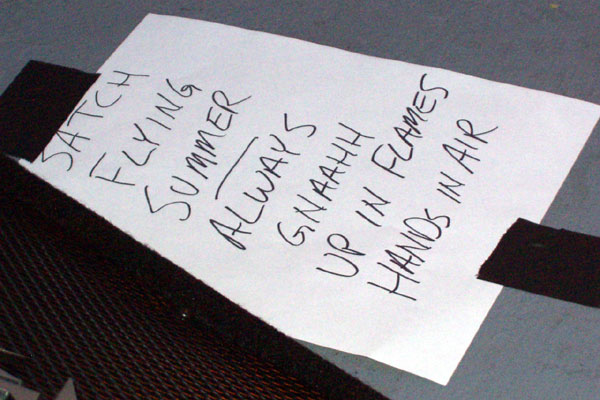 SATCH
FLYING
SUMMER
ALWAYS
GNAAHH
UP IN FLAMES
HANDS IN AIR